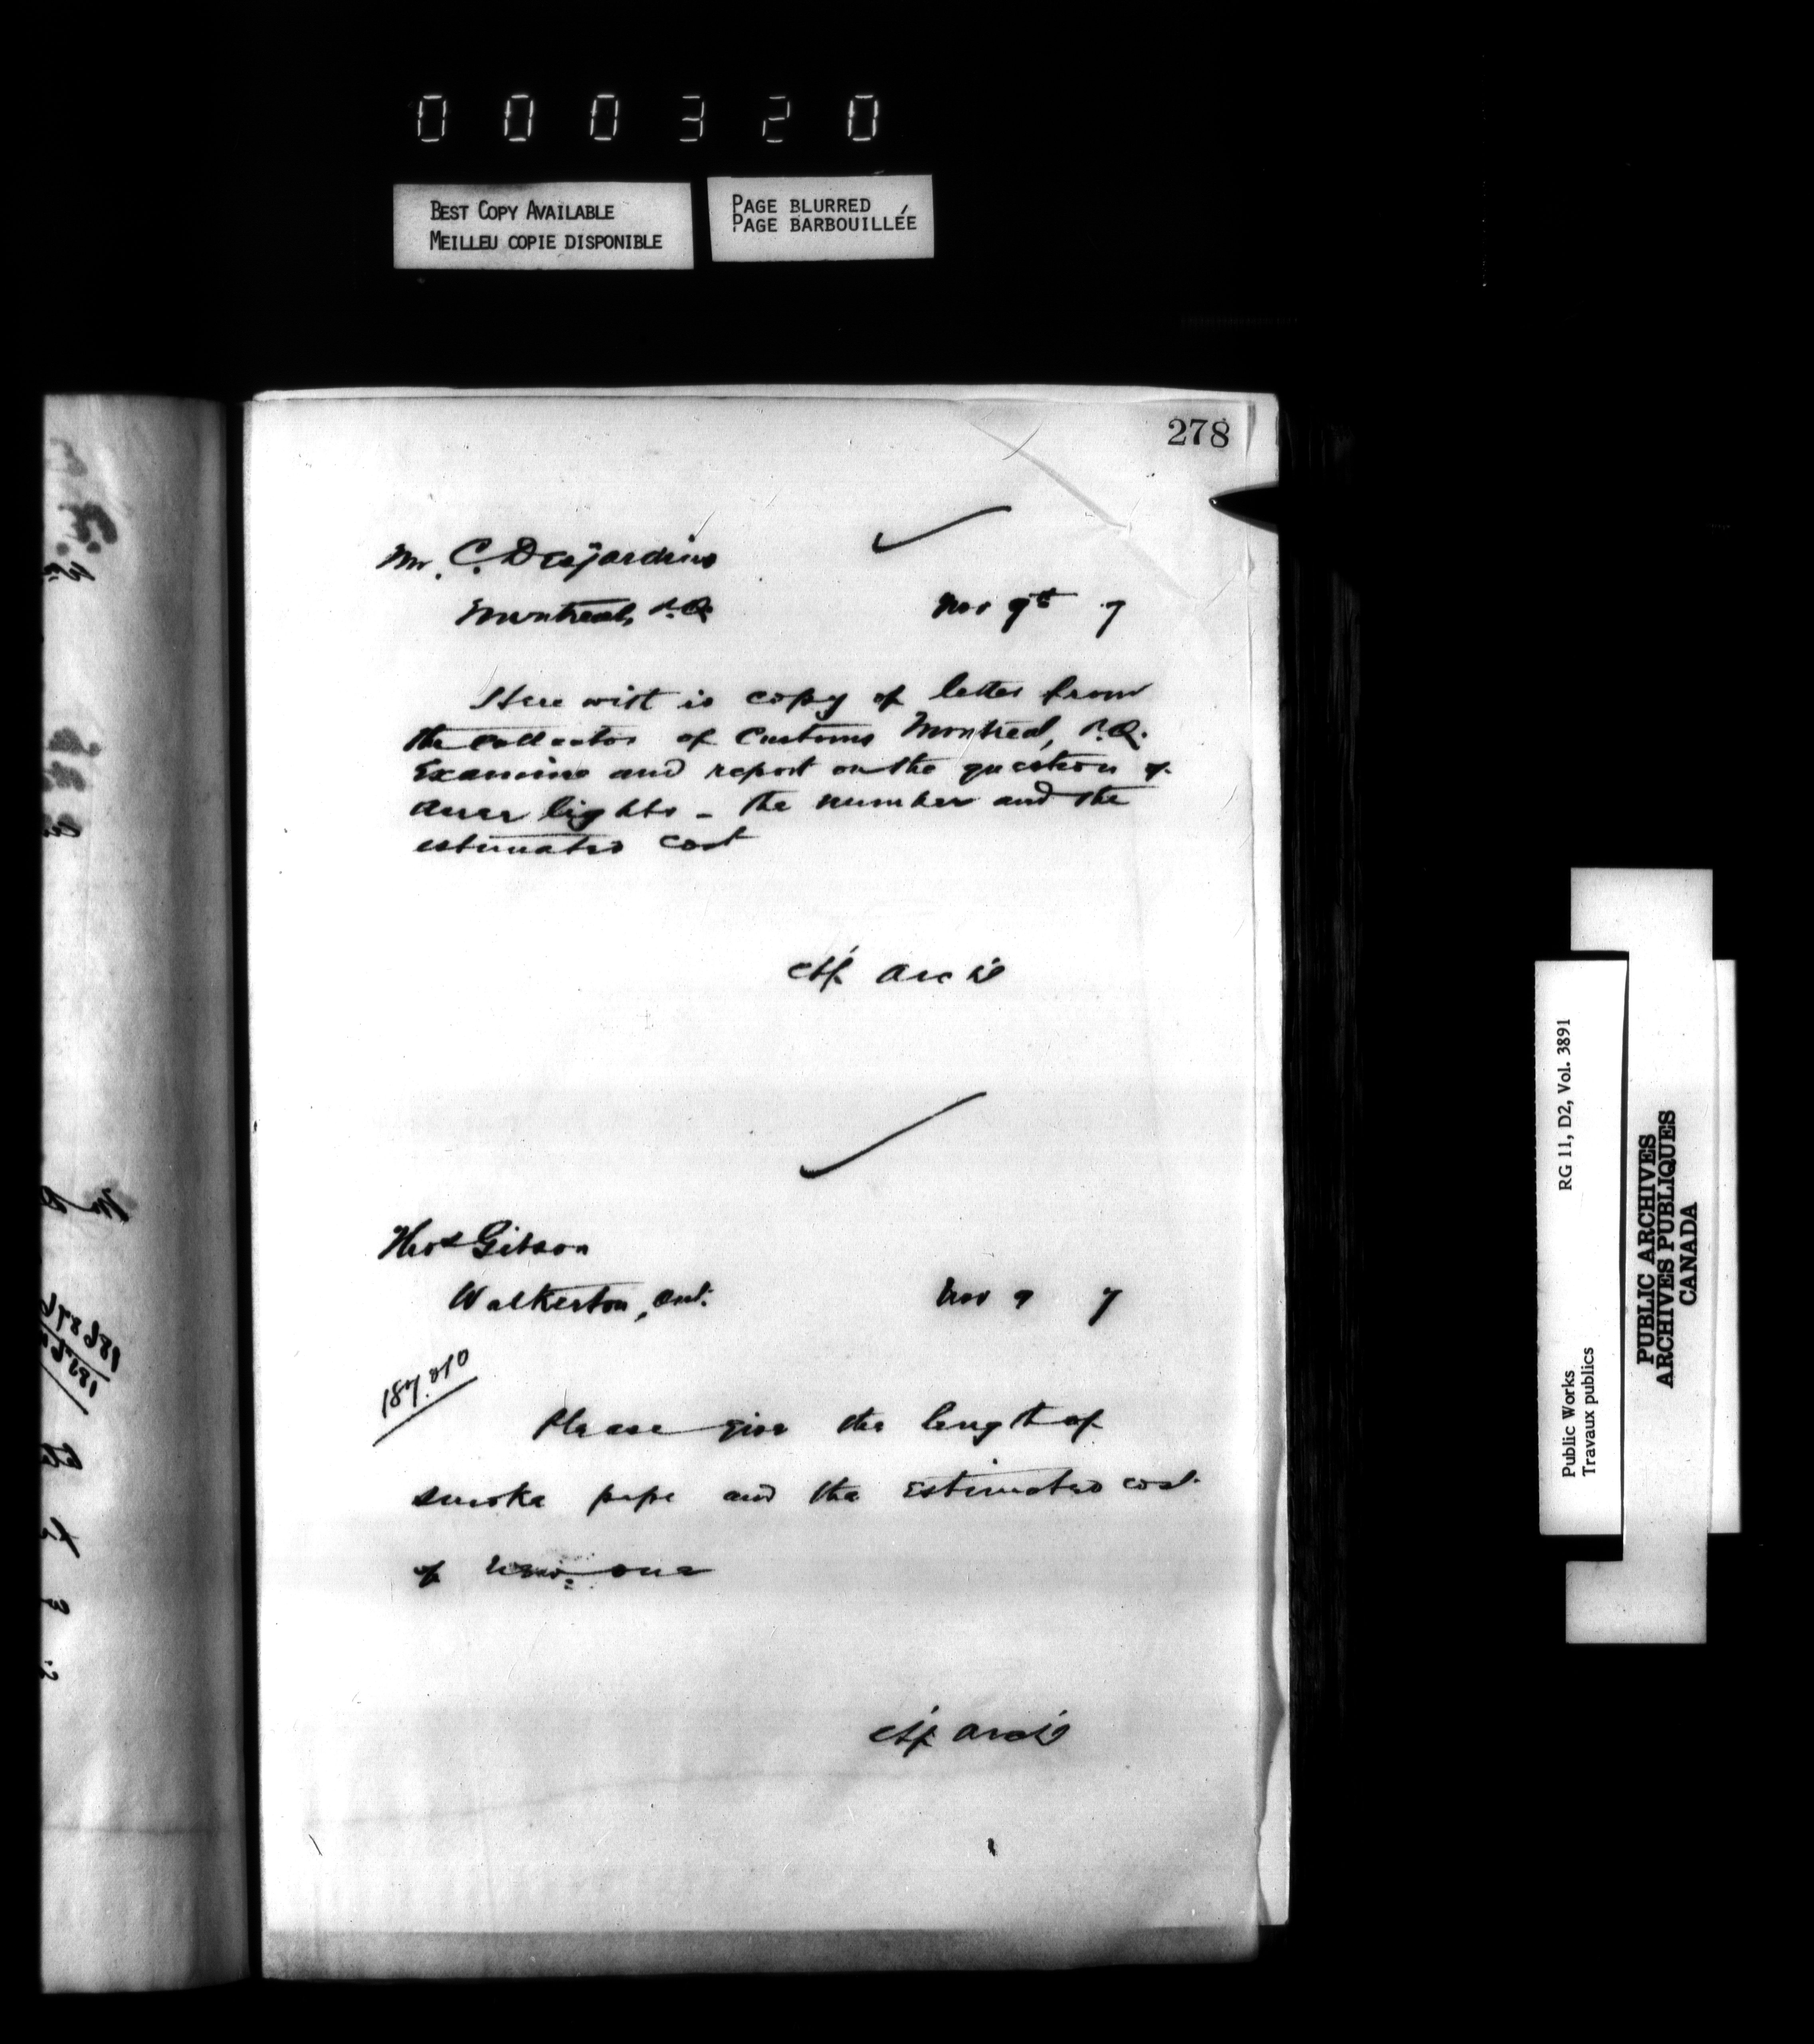 000320
BEST COPY AVAILABLE
MEILLEU COPIE DISPONIBLE
PAGE BLURRED
PAGE BARBOUILLÉE
278
Mr. C. Desjardins
Montreal, P.Q. Nov 9th 7
Here with is copy of letter from
the collector of Customs Montreal, P.Q.
Examine and report on the question of
auer lights - the number and the
estimated cost
Chf Arch't
Thos Gibson
Walkerton, Ont. Nov 9 7
187.810
Please give the length of
smoke pipe and the estimated cost
of new one
Chf Arch't
RG 11, D2, Vol. 3891
Public Works
Travaux publics
PUBLIC ARCHIVES
ARCHIVES PUBLIQUES
CANADA